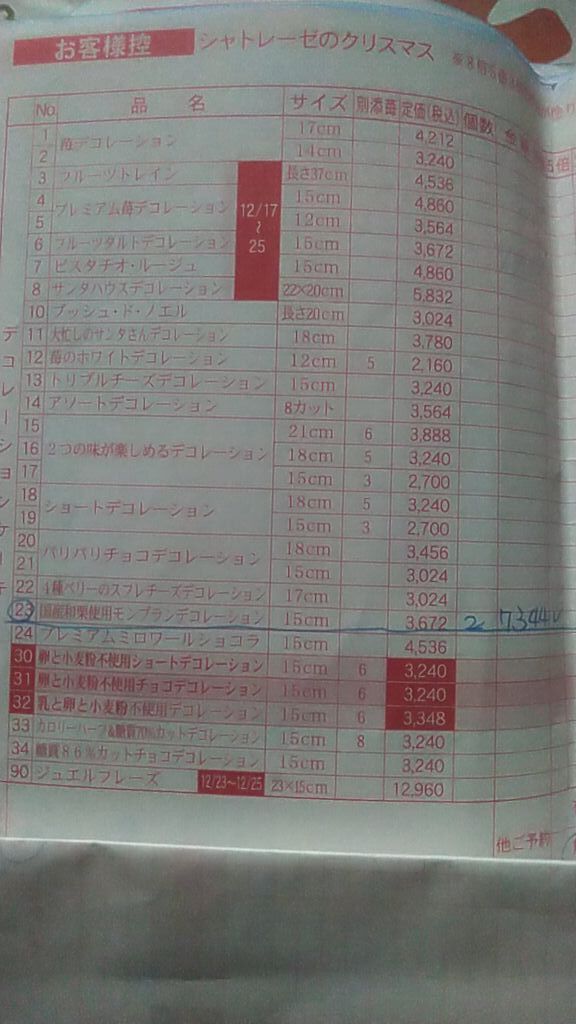 お客様控 シャトレーゼのクリスマス
No. 品名 サイズ 別添苺 定価(税込) 個数
1 苺デコレーション 17cm 4,212
2 14cm 3,240
3 フルーツトレイン 長さ37cm 4,536
4 プレミアム苺デコレーション 15cm 4,860
5 12cm 3,564
6 フルーツタルトデコレーション 15cm 3,672
7 ピスタチオ・ルージュ 15cm 4,860
8 サンタハウスデコレーション 22×20cm 5,832
12/17〜25
10 ブッシュ・ド・ノエル 長さ20cm 3,024
11 大忙しのサンタさんデコレーション 18cm 3,780
12 苺のホワイトデコレーション 12cm 5 2,160
13 トリプルチーズデコレーション 15cm 3,240
14 アソートデコレーション 8カット 3,564
15 21cm 6 3,888
16 2つの味が楽しめるデコレーション 18cm 5 3,240
17 15cm 3 2,700
18 ショートデコレーション 18cm 5 3,240
19 15cm 3 2,700
20 パリパリチョコデコレーション 18cm 3,456
21 15cm 3,024
22 4種ベリーのスフレチーズデコレーション 17cm 3,024
23 国産和栗使用モンブランデコレーション 15cm 3,672 2 7344
24 プレミアムミロワールショコラ 15cm 4,536
30 卵と小麦粉不使用ショートデコレーション 15cm 6 3,240
31 卵と小麦粉不使用チョコデコレーション 15cm 6 3,240
32 乳と卵と小麦粉不使用デコレーション 15cm 6 3,348
33 カロリーハーフ&糖質70%カットデコレーション 15cm 8 3,240
34 糖質86%カットチョコデコレーション 15cm 3,240
90 ジュエルフレーズ 12/23〜12/25 23×15cm 12,960
他ご予約